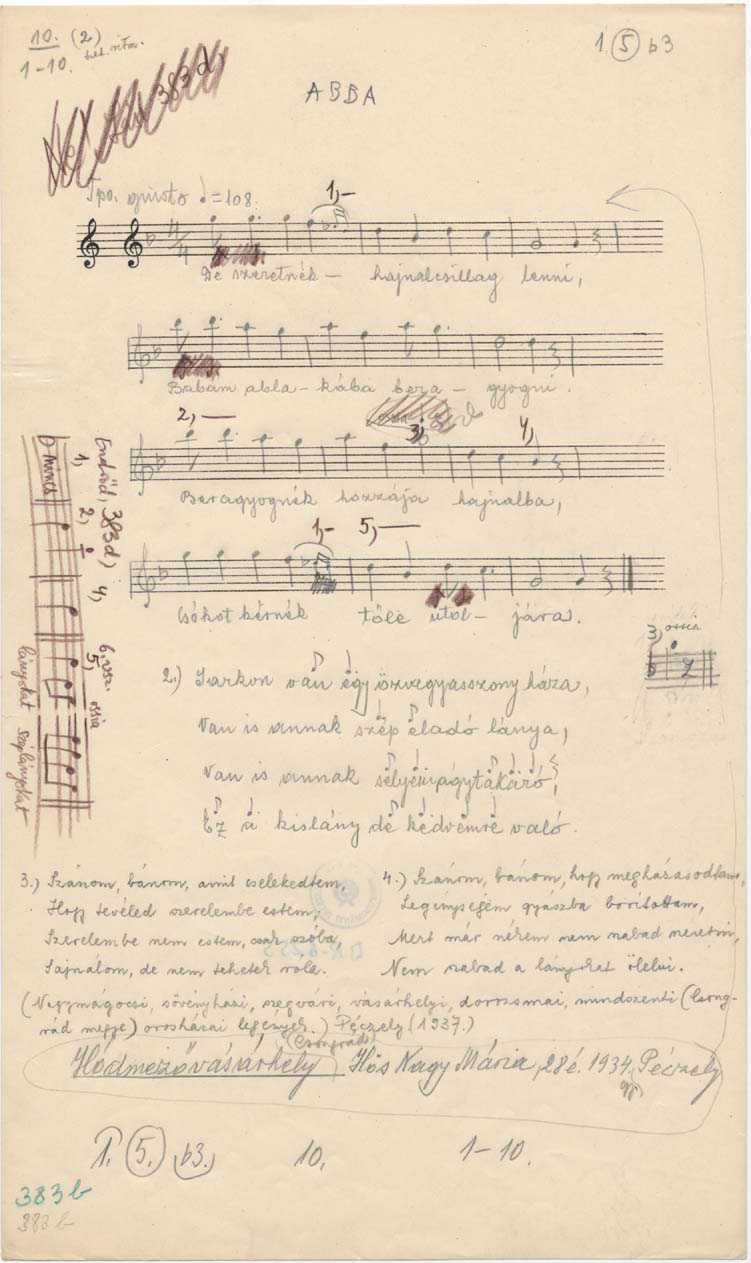 10. (2)
1-10.
383d,
1. 5 b3
ABBA
Tpo. giusto ♩=108.
1,-
4/4
De szeretnék – hajnalcsillag lenni,
Babám abla-kába bera-gyogni.
2,—
3,
4,
Beragyognék hozzája hajnalba,
1,- 5,—
Csókot kérnék tőle utol-jára.
3, ossia
Endrőd, 383d)
1, 2, 4, 5,
6. vsz.
ossia
nincs
lányokat
széplányokat
2.) Sarkon van egy özvegyasszony háza,
Van is annak szép eladó lánya,
Van is annak selyempágytakaró,
Ez a kislány de kedvemre való.
3.) Szánom, bánom, amit cselekedtem,
Hogy tevéled szerelembe estem,
Szerelembe nem estem, csak szóba,
Sajnálom, de nem tehetek róla.
4.) Szánom, bánom, hogy megházasodtam,
Legénységem gyászba borítottam,
Mert már nékem nem szabad szeretni,
Nem szabad a lányokat ölelni.
(Nagymágocsi, sövényházi, szegvári, vásárhelyi, dorozsmai, mindszenti (Csong-
rád megye) orosházai legények.) Péczely (1937.)
(Csongrád)
Hódmezővásárhely Hős Nagy Mária, 28 é. 1934. Péczely
gy.
1. 5. b3. 10. 1-10.
383b
383b